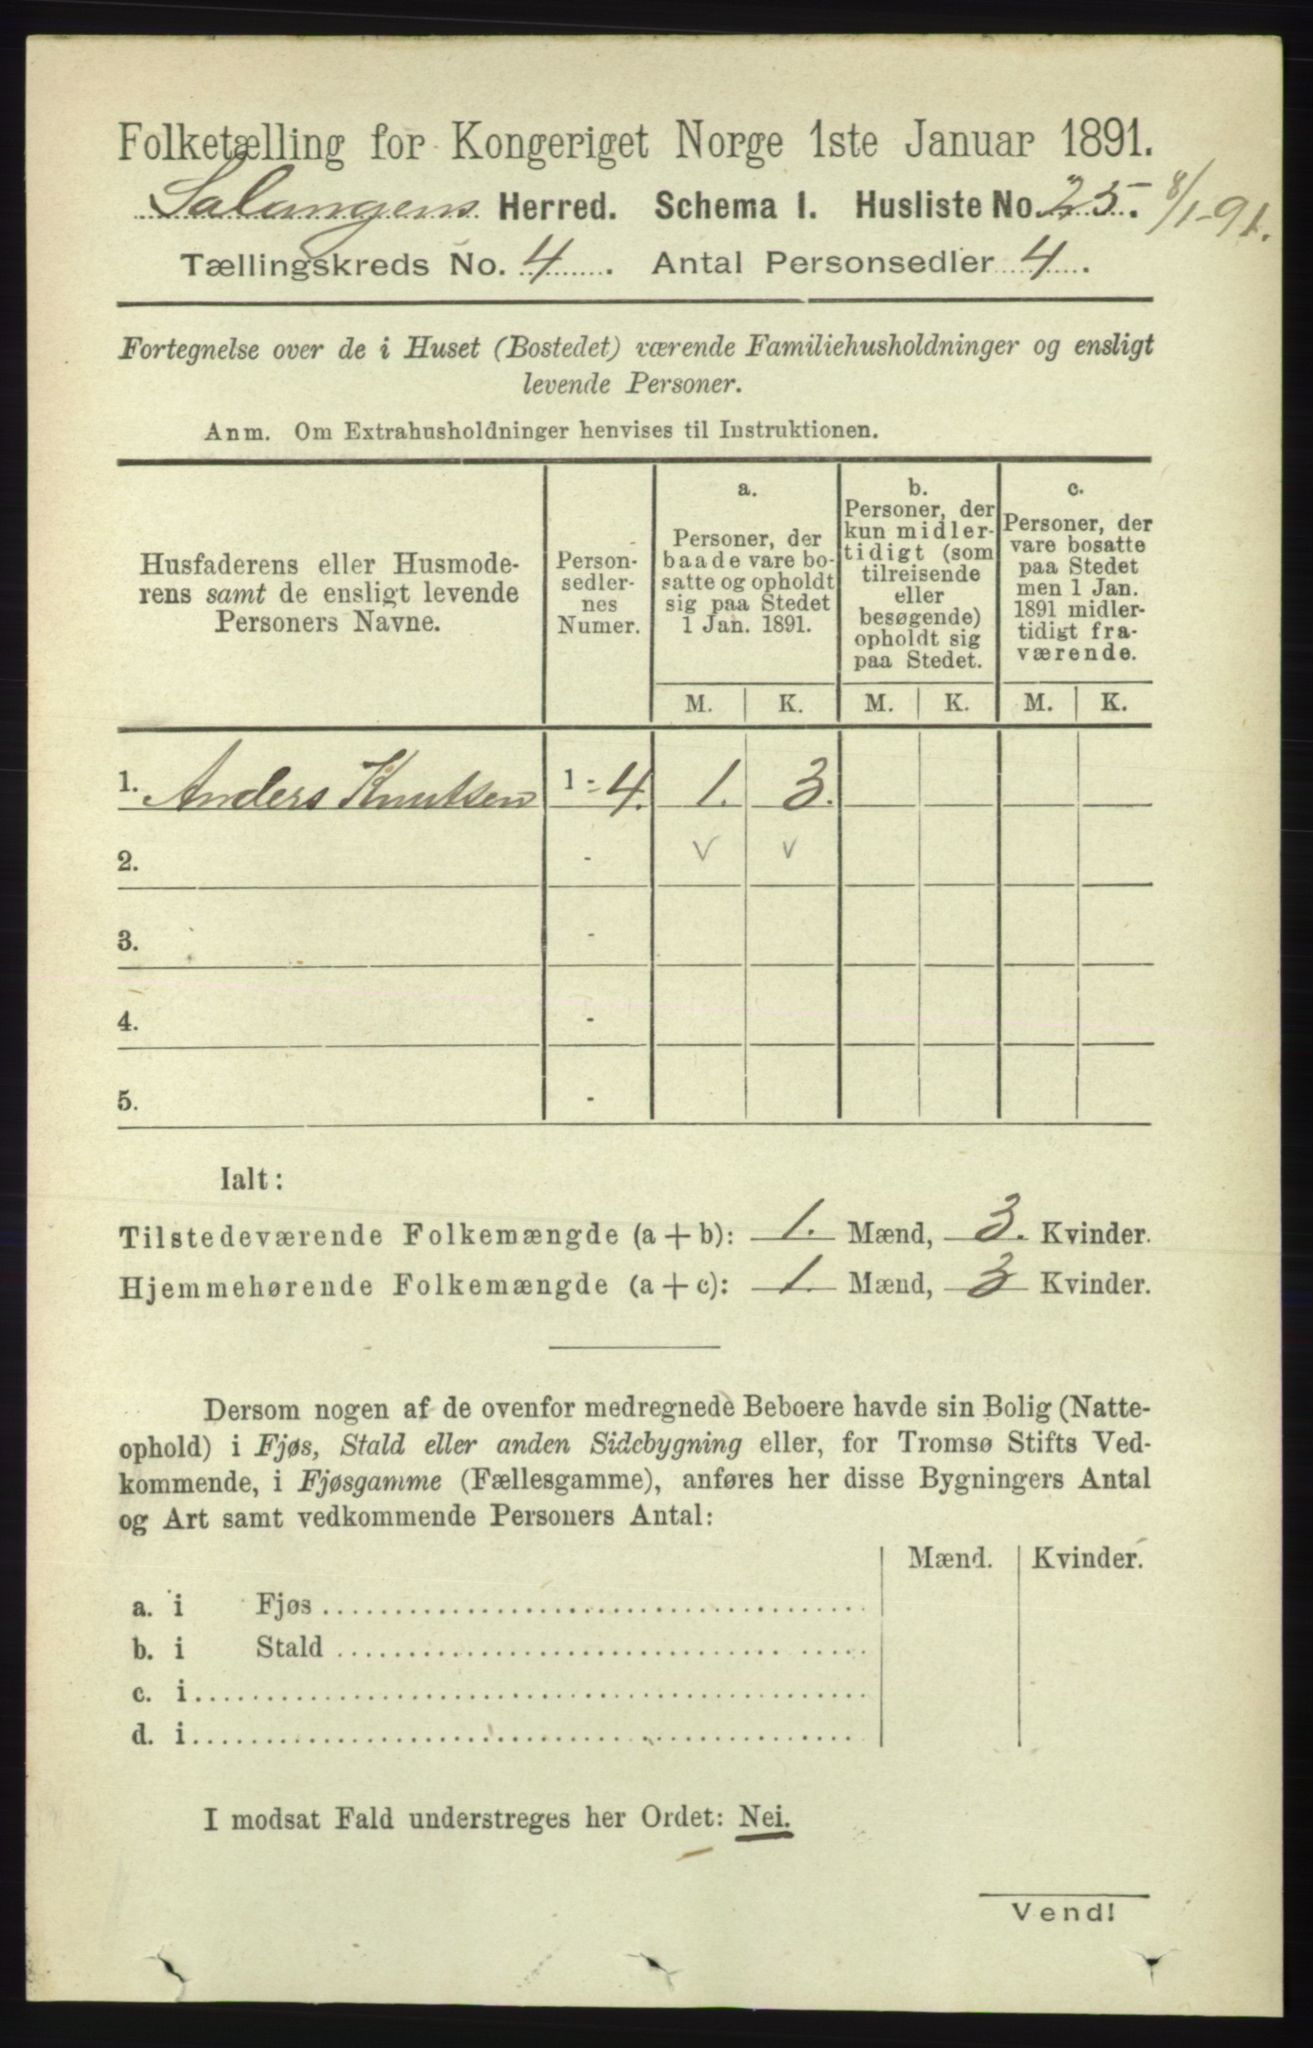 Folketælling for Kongeriget Norge 1ste Januar 1891.
Salangens Herred. Schema I. Husliste No. 25. 8/1-91.
Tællingskreds No. 4. Antal Personsedler 4.
Fortegnelse over de i Huset (Bostedet) værende Familiehusholdninger og ensligt
levende Personer.
Anm. Om Extrahusholdninger henvises til Instruktionen.
Husfaderens eller Husmode-
rens samt de ensligt levende
Personers Navne.
Person-
sedler-
nes
Numer.
a.
Personer, der
baade vare bo-
satte og opholdt
sig paa Stedet
1 Jan. 1891.
b.
Personer, der
kun midler-
tidigt (som
tilreisende
eller
besøgende)
opholdt sig
paa Stedet.
c.
Personer, der
vare bosatte
paa Stedet
men 1 Jan.
1891 midler-
tidigt fra-
værende.
M. K. M. K. M. K.
1. Anders Knutsen 1-4. 1. 3.
2. - v v
3. -
4. -
5. -
Ialt:
Tilstedeværende Folkemængde (a+b): 1. Mænd, 3. Kvinder.
Hjemmehørende Folkemængde (a+c): 1. Mænd, 3 Kvinder.
Dersom nogen af de ovenfor medregnede Beboere havde sin Bolig (Natte-
ophold) i Fjøs, Stald eller anden Sidebygning eller, for Tromsø Stifts Ved-
kommende, i Fjøsgamme (Fællesgamme), anføres her disse Bygningers Antal
og Art samt vedkommende Personers Antal:
Mænd. Kvinder.
a. i Fjøs
b. i Stald
c. i
d. i
I modsat Fald understreges her Ordet: Nei.
Vend!